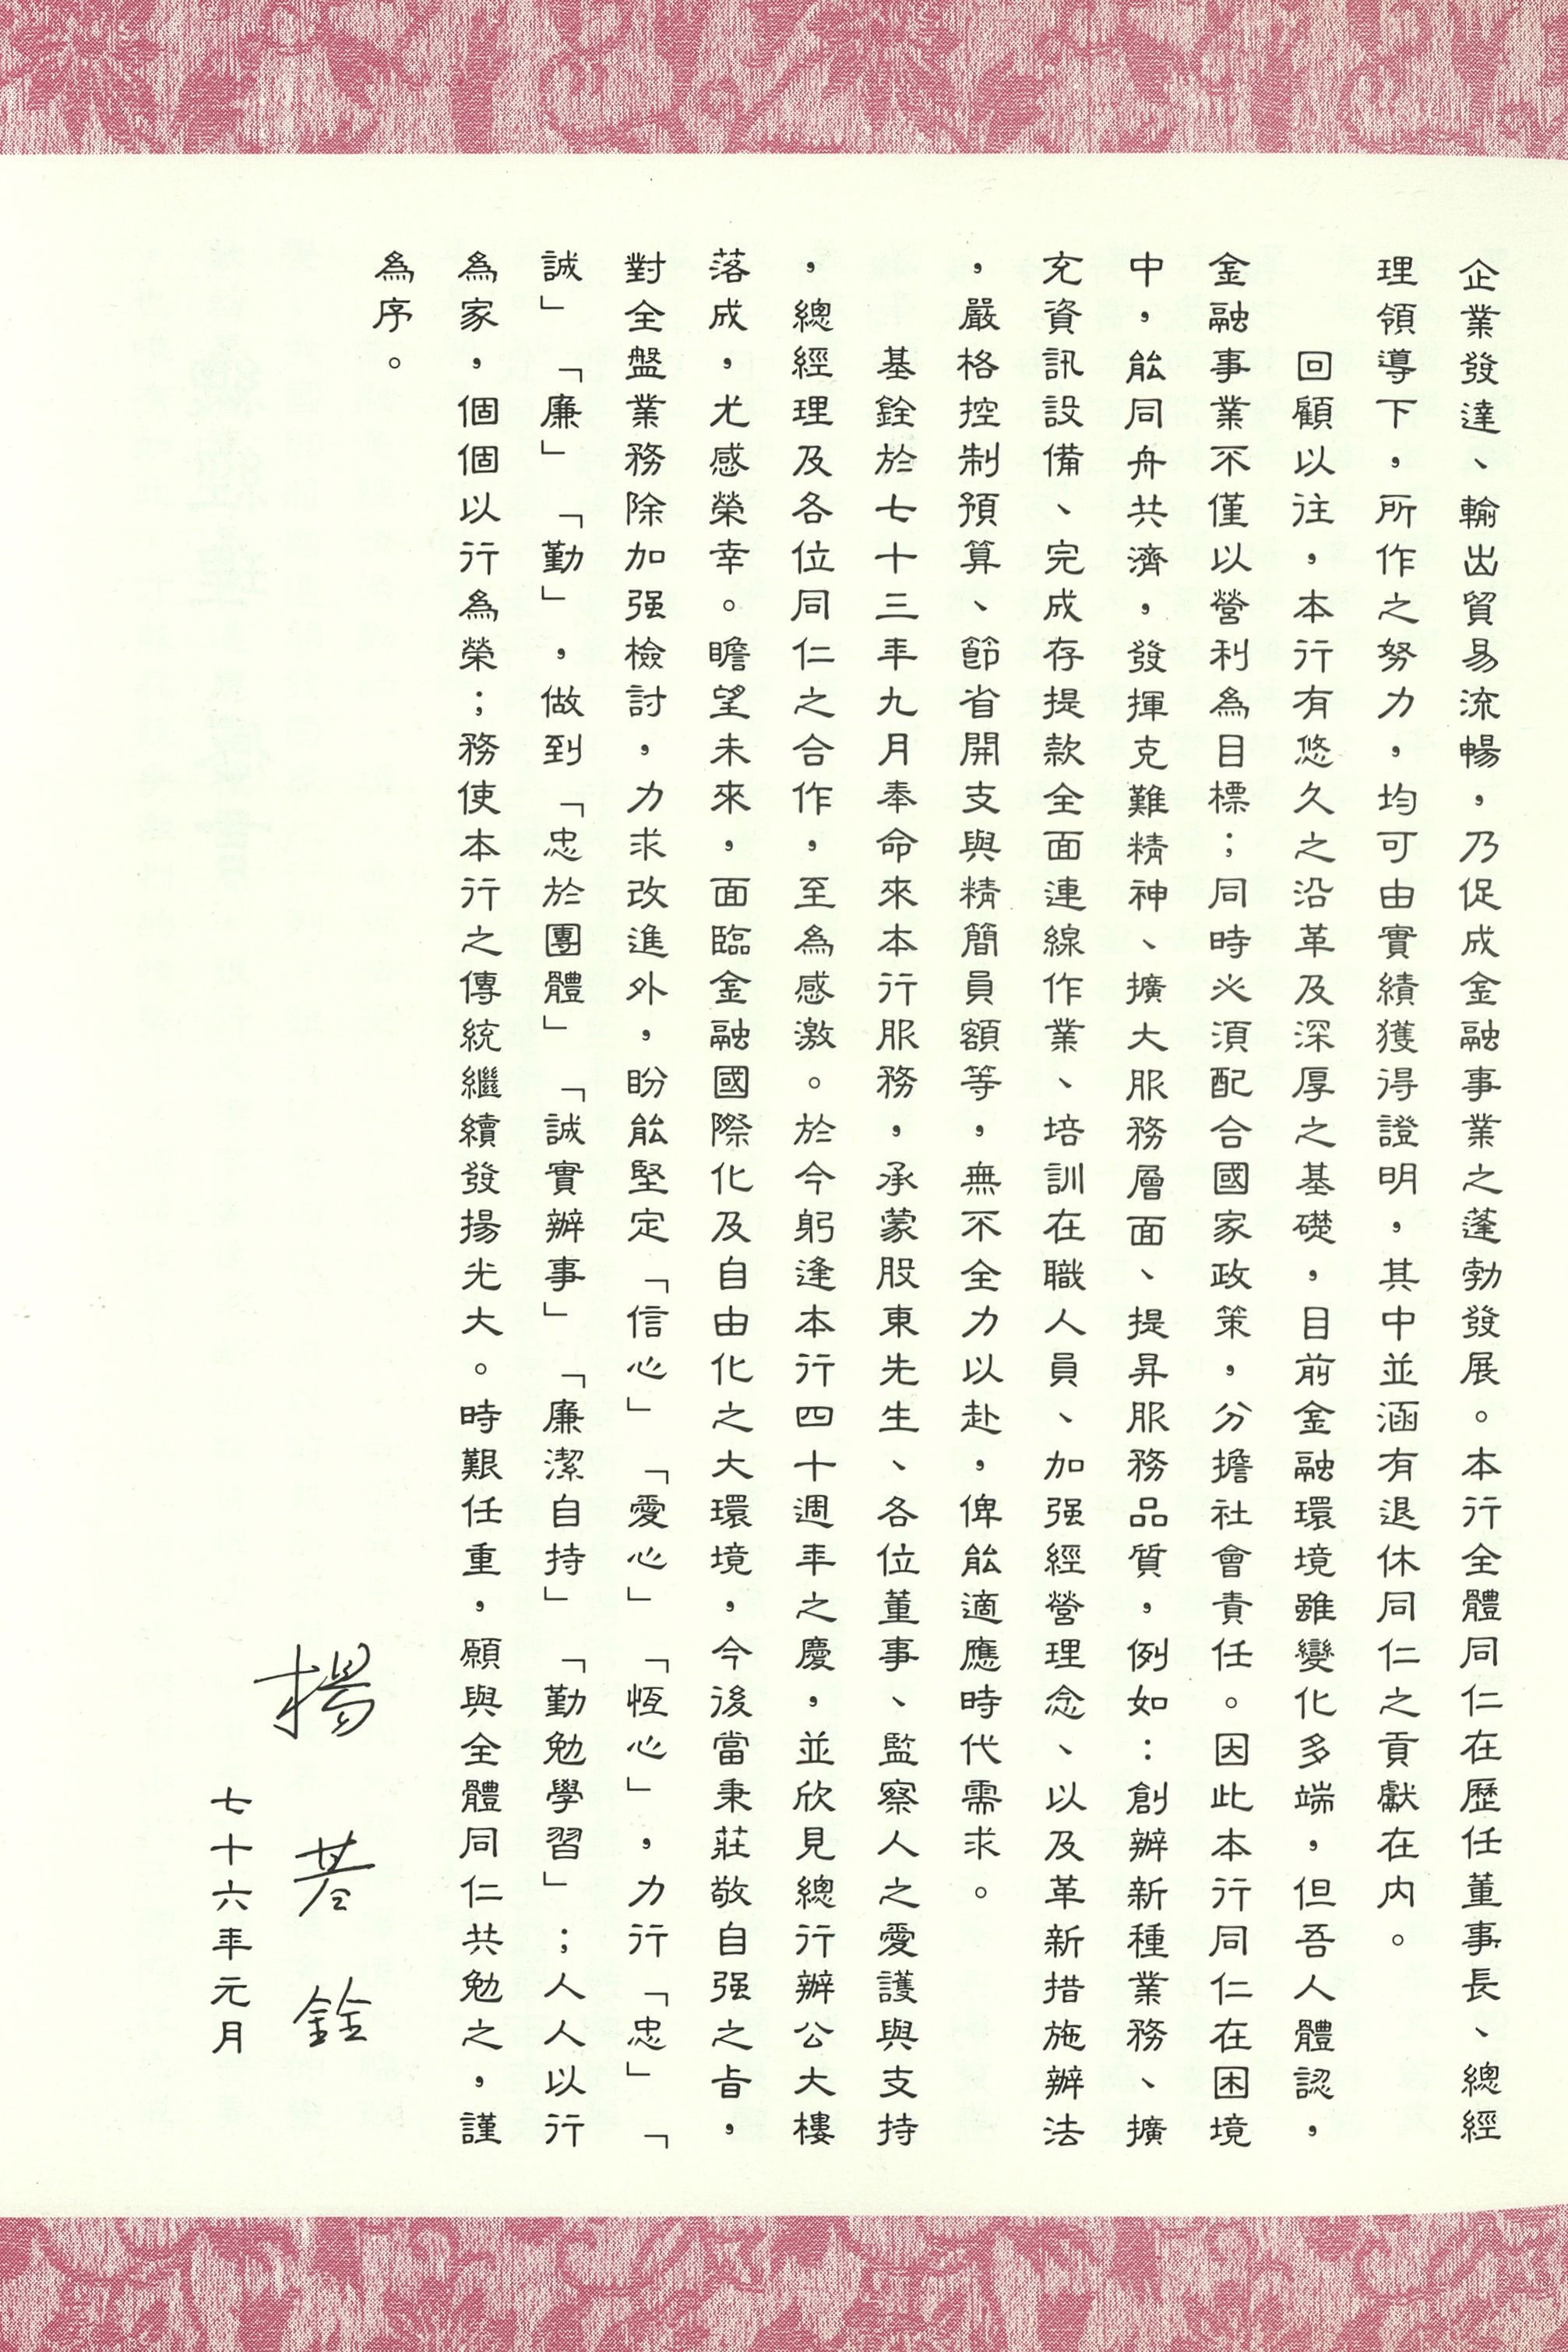 企業發達、輸出貿易流暢，乃促成金融事業之蓬勃發展。本行全體同仁在歷任董事長、總經
理領導下，所作之努力，均可由實績獲得證明，其中並涵有退休同仁之貢獻在內。
回顧以往，本行有悠久之沿革及深厚之基礎，目前金融環境雖變化多端，但吾人體認，
金融事業不僅以營利為目標；同時必須配合國家政策，分擔社會責任。因此本行同仁在困境
中，能同舟共濟，發揮克難精神、擴大服務層面、提昇服務品質，例如：創辦新種業務、擴
充資訊設備、完成存提款全面連線作業、培訓在職人員、加强經營理念、以及革新措施辦法
，嚴格控制預算、節省開支與精簡員額等，無不全力以赴，俾能適應時代需求。
基銓於七十三年九月奉命來本行服務，承蒙股東先生、各位董事、監察人之愛護與支持
，總經理及各位同仁之合作，至為感激。於今躬逢本行四十週年之慶，並欣見總行辦公大樓
落成，尤感榮幸。瞻望未來，面臨金融國際化及自由化之大環境，今後當秉莊敬自强之旨，
對全盤業務除加强檢討，力求改進外，盼能堅定「信心」「愛心」「恆心」，力行「忠」「
誠」「廉」「勤」，做到「忠於團體」「誠實辦事」「廉潔自持」「勤勉學習」；人人以行
為家，個個以行為榮；務使本行之傳統繼續發揚光大。時艱任重，願與全體同仁共勉之，謹
為序。
楊基銓
七十六年元月